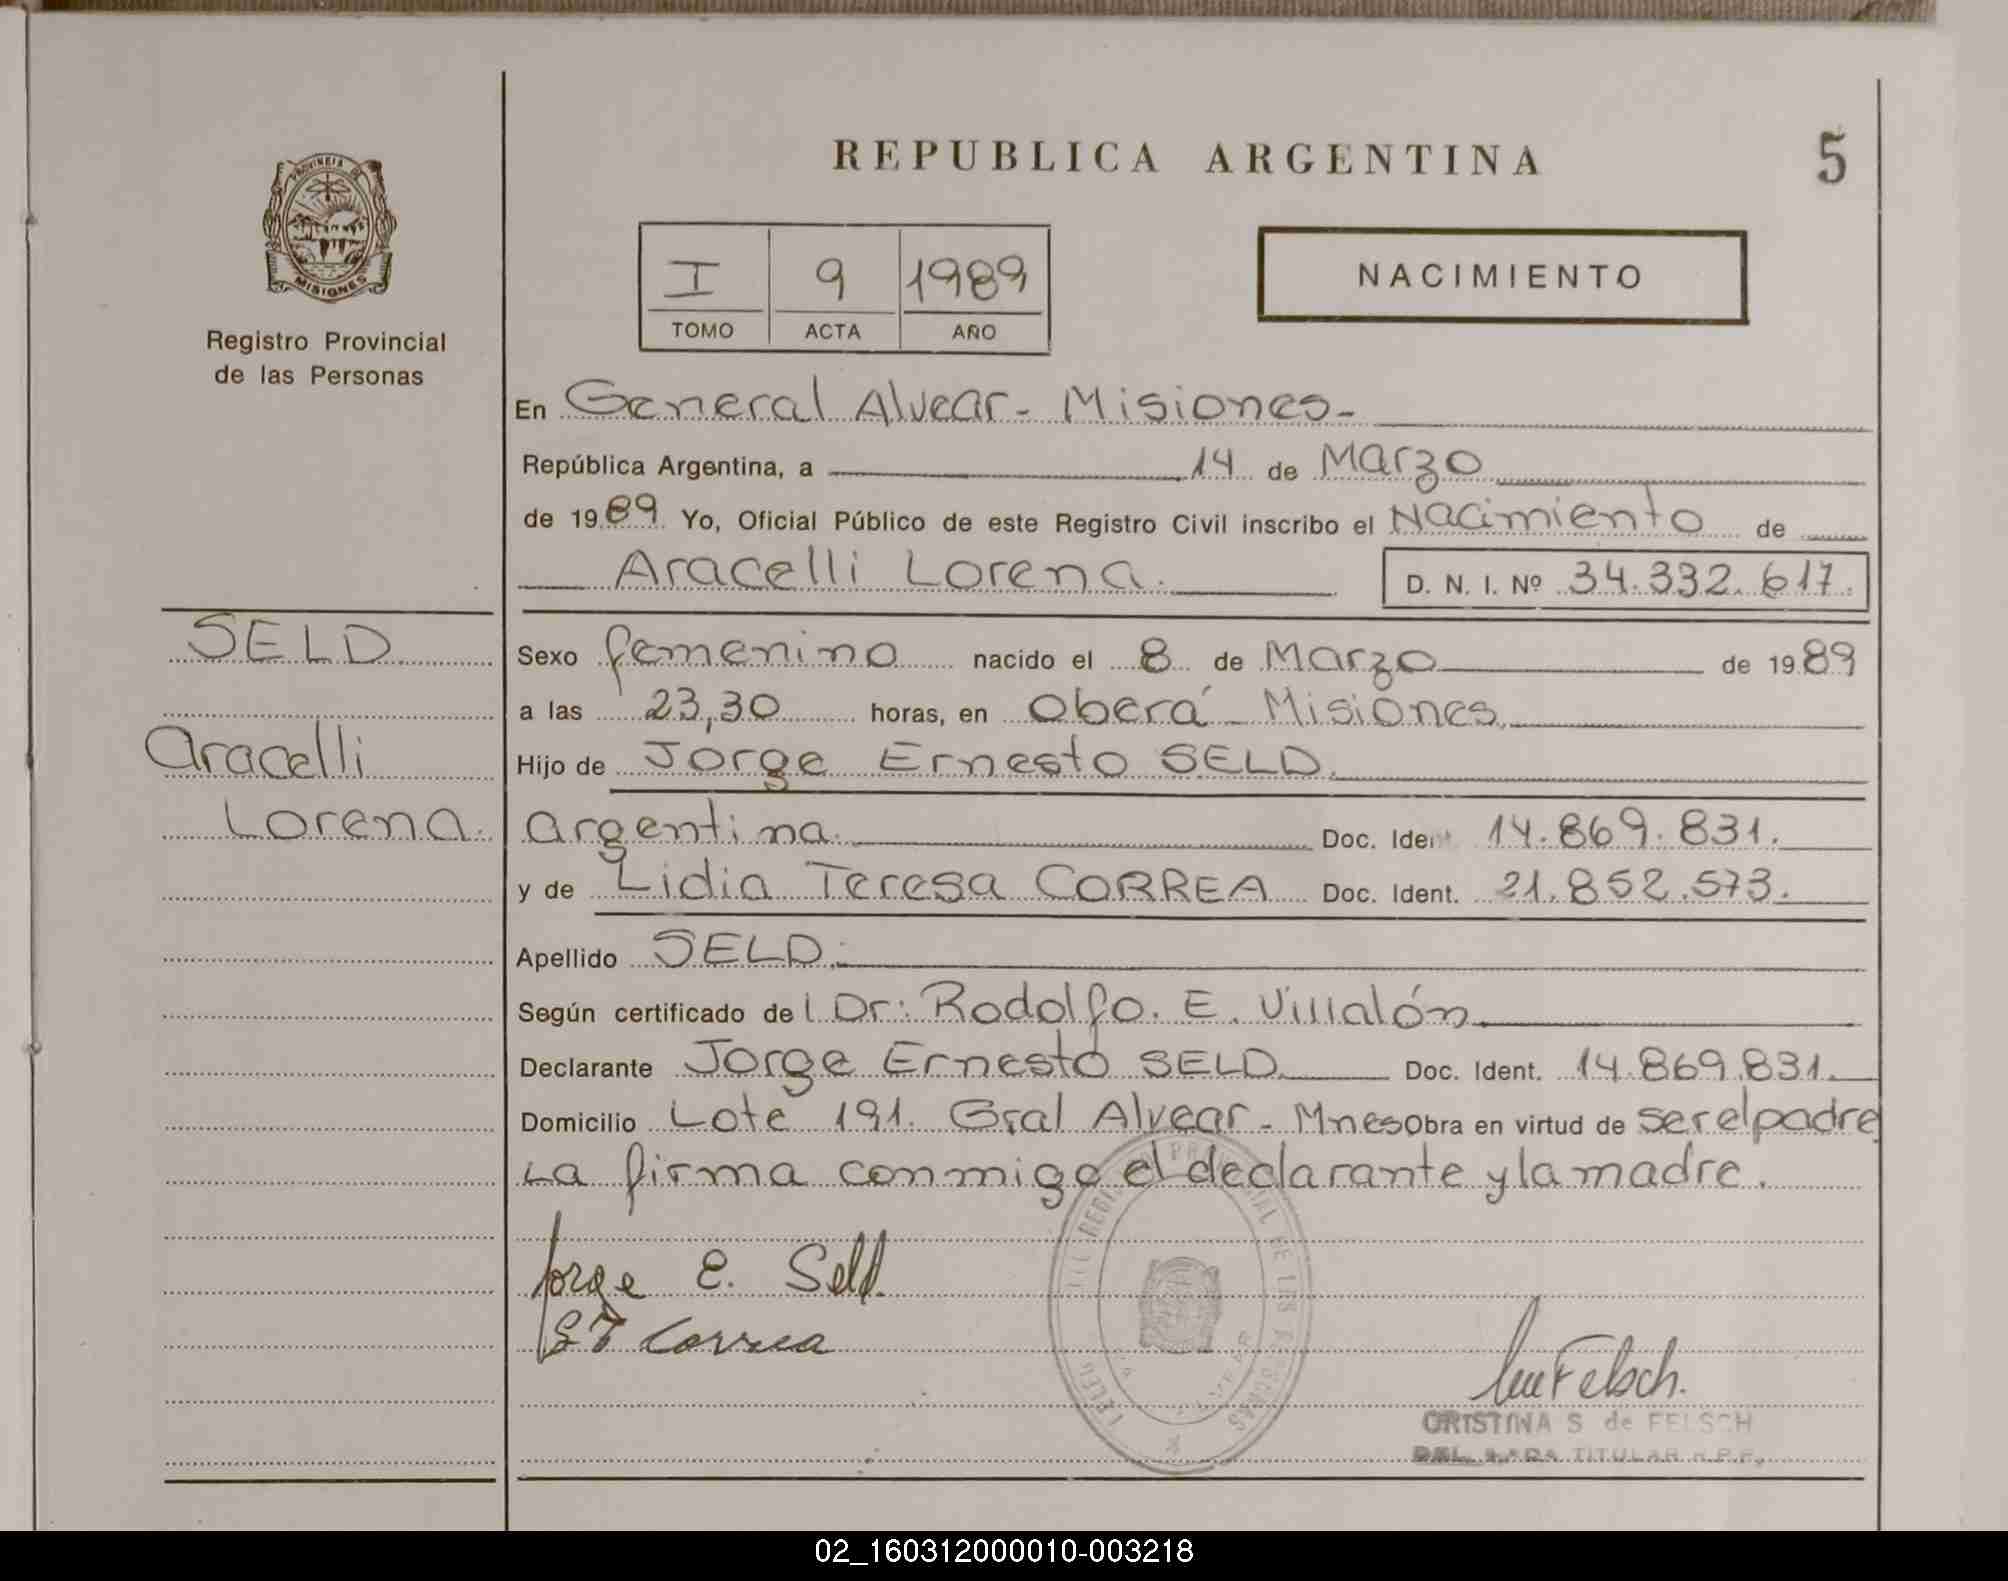 REPUBLICA ARGENTINA
5
PROVINCIA DE
MISIONES
Registro Provincial
de las Personas
I 9 1989
TOMO ACTA AÑO
NACIMIENTO
En General Alvear - Misiones -
República Argentina, a 14 de Marzo
de 1989 Yo, Oficial Público de este Registro Civil inscribo el Nacimiento de
Aracelli Lorena. D. N. I. Nº 34.332.617.
SELD
Aracelli
Lorena.
Sexo femenino nacido el 8 de Marzo de 1989
a las 23,30 horas, en Oberá - Misiones.
Hijo de Jorge Ernesto SELD.
argentina. Doc. Ident. 14.869.831.
y de Lidia Teresa CORREA Doc. Ident. 21.852.573.
Apellido SELD.-
Según certificado del Dr: Rodolfo. E. Villalón
Declarante Jorge Ernesto SELD Doc. Ident. 14.869.831.
Domicilio Lote 191. Gral Alvear - Mnes Obra en virtud de ser el padre
La firma conmigo el declarante y la madre.
Jorge E. Seld.
Correa
Felsch.
CRISTINA S de FELSCH
TITULAR R.P.P.
02_160312000010-003218